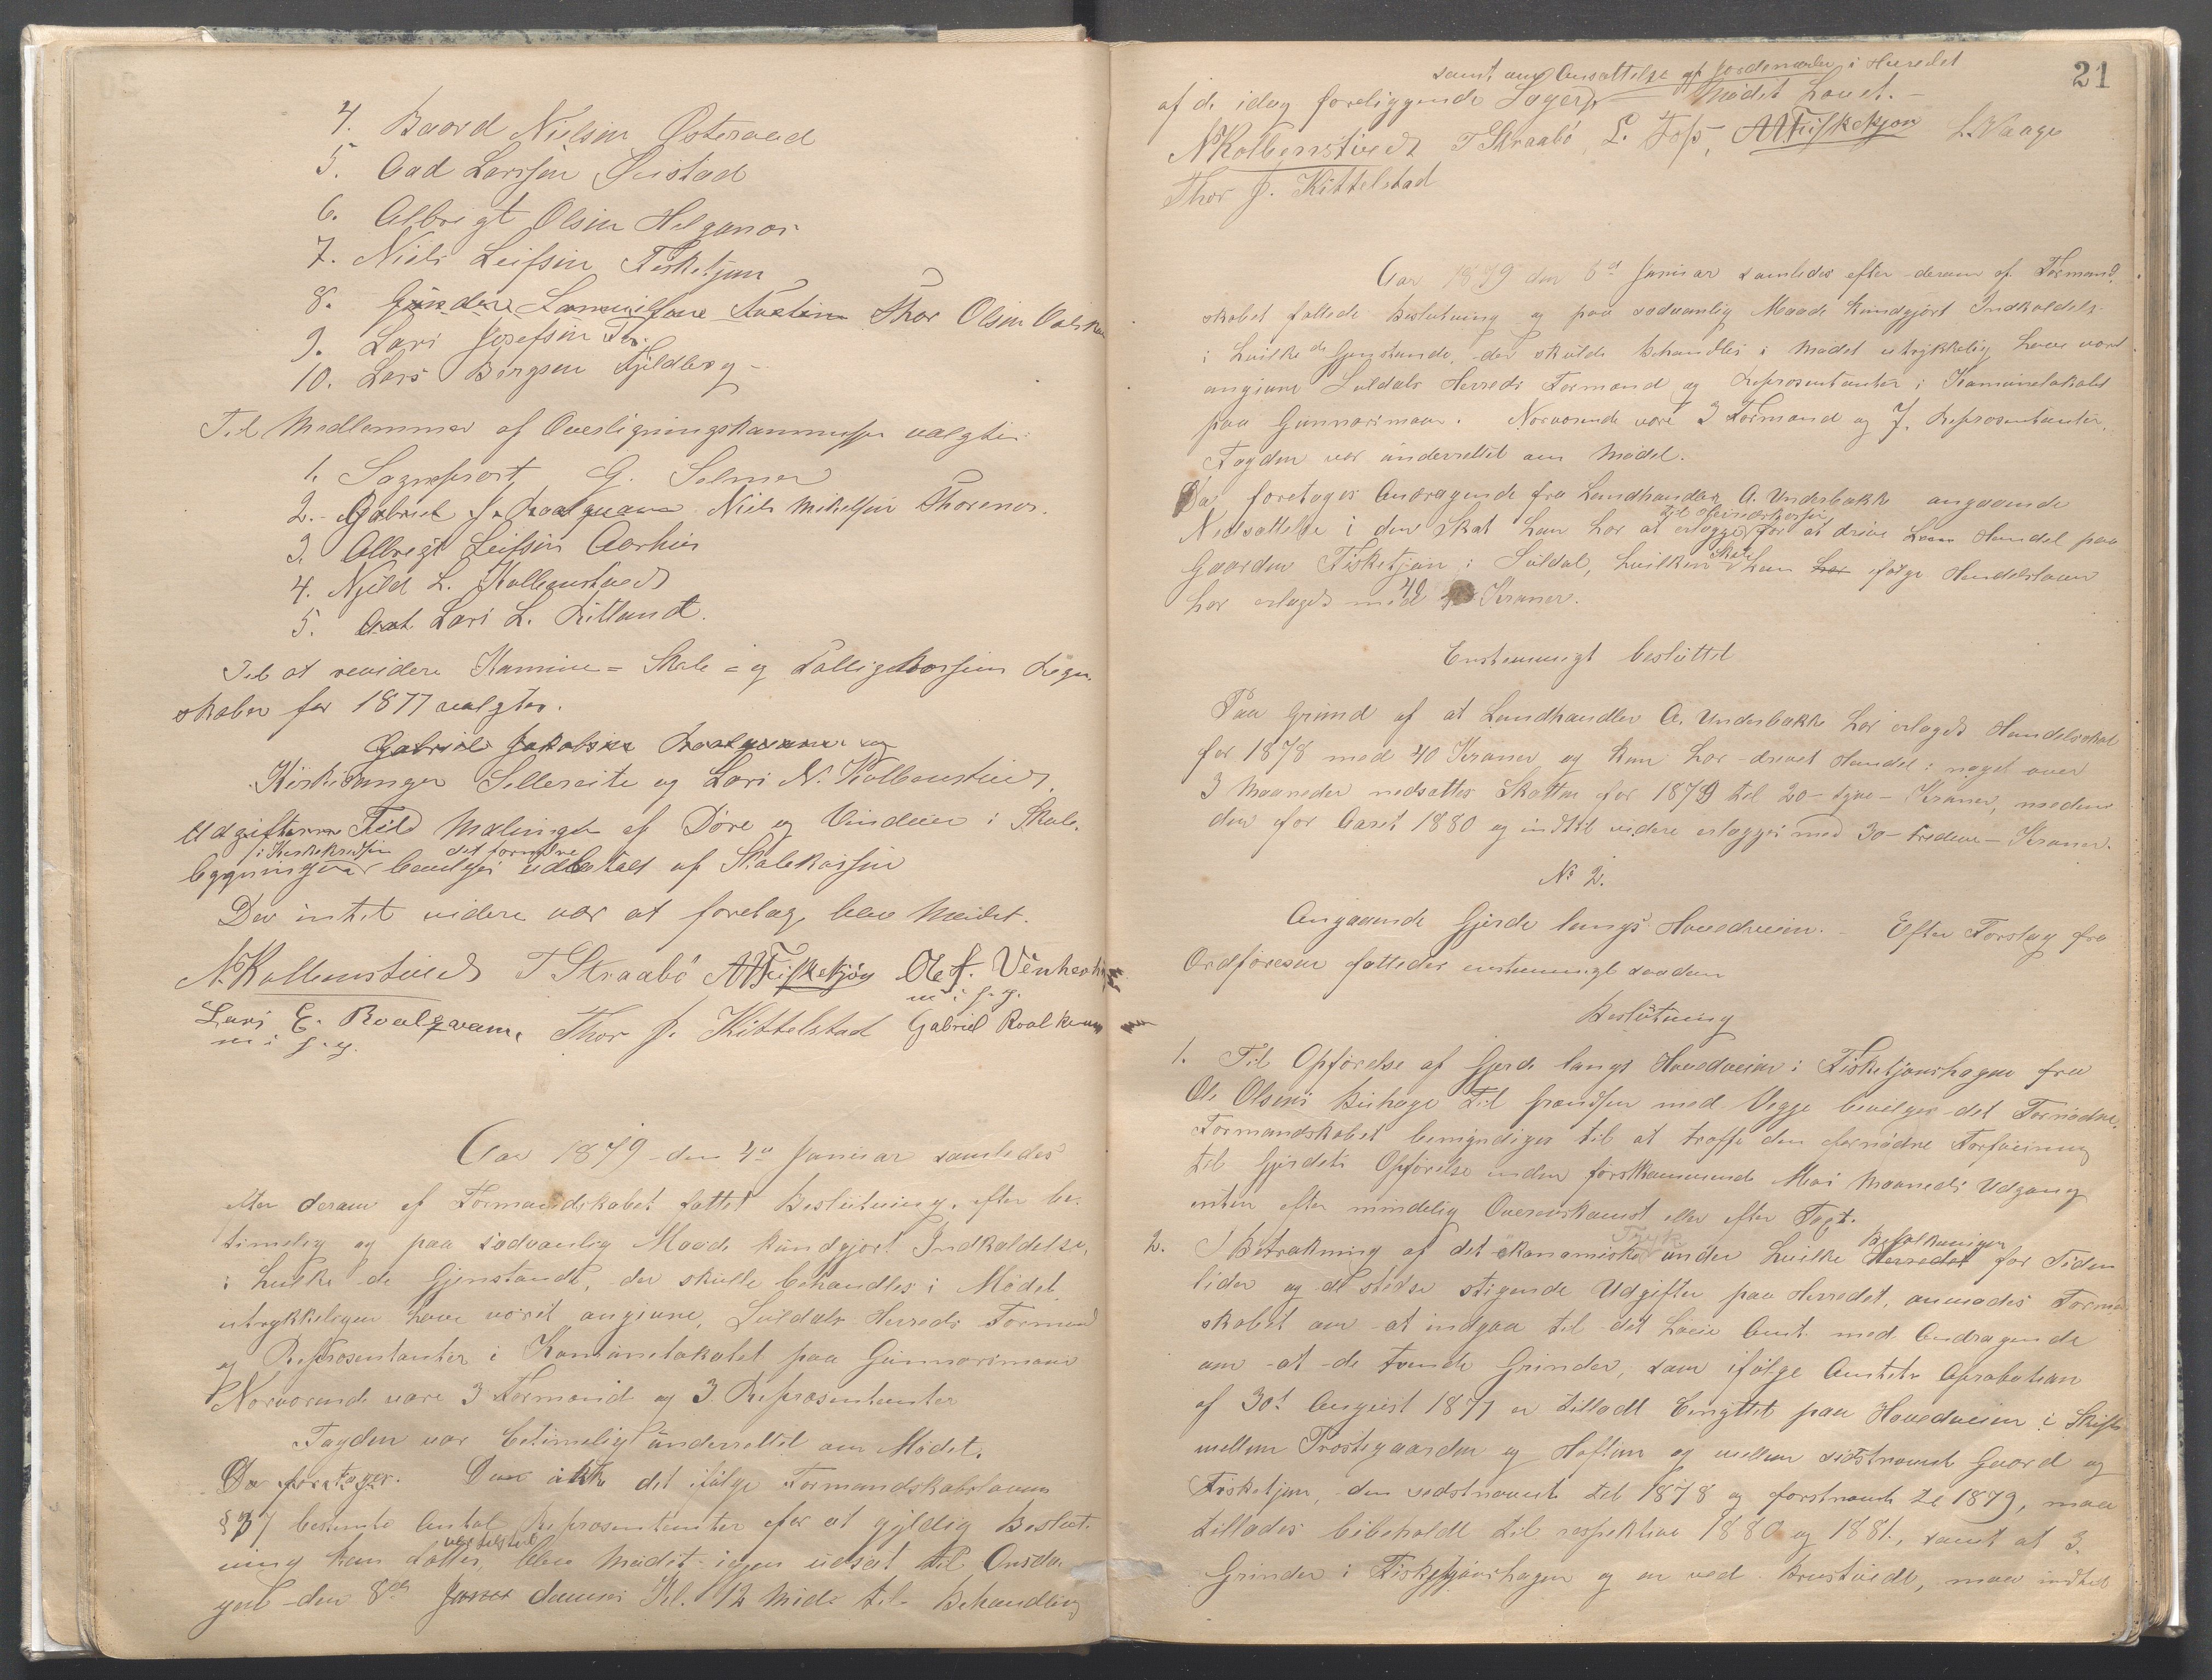 4. Baard Nielsen Østeraad
5. Aad Larssen Øistad
6. Albregt Olsen Helganæs
7. Niels Leifsen Fisketjøn
8. Thor Olsen
9. Lars Josefsen
10. Lars Børgsen Fjeldberg
Til Medlemmer af Overligningskommissen valgtes:
1. Sogneprest G. Selmer
2. Gabriel J. Roalquam Niels Mikelsen Thorenes.
3. Albregt Leifsen Aarhus
4. Njeld L. Kolbenstvedt
5. Lars L. Litland.
Til at revidere Kommune- Skole- og Fattigkassens Regn-
skaber for 1877 valgtes.
Gabriel Jakobsen Roalquam og
Kirkesanger Sellereite og Lars N. Kolbenstvedt
Udgifterne Til Malingen af Døre og Vinduer i Skole-
i Kirkekredsen det fornødne
bygningen bevilges udbetalt af Skolekassen
Der intet videre var at foretage, blev Mødet.
N. Kolbenstvedt T Straabø Ole J.
m. f. g.
Lars E. Roalqvam, Thor J. Kittelstad Gabriel Roalkvam
m. f. g.
Aar 1879 den 4de Januar samledes
efter derom af Formandskabet fattet Beslutning, efter be-
timelig og paa sædvanlig Maade kundgjort Indkaldelse,
i hvilke de Gjenstande, der skulle behandles i Mødet
utrykkeligen have været angivne, Suldals Herreds Formænd
og Repræsentanter i Kommunelokalet paa Gunnarsmoen
Nærværende vare 3 Formænd og 3 Repræsentanter
Fogden var betimeligt underrettet om Mødet.
Da foretages. Da ikke det ifølge Formandskabsloven
§ 37 bestemte Antal Repræsentanter for at gyldig Beslut-
var tilstede
ning kan fattes, blev Mødet igjen udsat til Onsda-
gen den 8de dennes Kl. 12 Mid. til Behandling
21
samt om Ansættelse af Jordemoder i Herredet
af de idag foreliggende Sager Mødet hævet.
N Kolbenstvedt T Straabø, L. Foss, L. Vaage
Thor J. Kittelstad
Aar 1879 den 8de Januar samledes efter derom af Formand-
skabet fattede Beslutning og paa sædvanlig Maade kundgjort Indkaldelse
i hvilke de Gjenstande, der skulde behandles i Mødet utrykkelig have været
angivne Suldals Herreds Formænd og Repræsentanter i Kommunelokalet
paa Gunnarsmoen. Nærværende vare 3 Formænd og 7 Repræsentanter,
Fogden var underrettet om Mødet.
Da foretages Andragende fra Landhandler A. Underbakke angaaende
til Herredskassen
Nedsættelse i den Skat han har at erlægge for at drive Handel paa
Skat
Gaarden Fisketjøn i Suldal, hvilken han har ifølge Handelsloven
har erlagds med 40 Kroner.
Enstemmigt besluttet
Paa Grund af at Landhandler A. Underbakke har erlagds Handelsskat
for 1878 med 40 Kroner og kun har drevet Handel i noget over
3 Maaneder nedsættes Skatten for 1879 til 20 - tyve - Kroner, medens
den for Aaret 1880 og indtil videre erlægges med 30 - tredeve - Kroner.
No 2.
Angaaende Gjerde langs Hovedveien. Efter Forslag fra
Ordføreren fattedes enstemmigt saadan
Beslutning
1. Til Opførelse af Gjerde langs Hovedveien i Fisketjønshagen fra
Ole Olsens Buhage til Grændsen med Vegge bevilges det Fornødne.
Formandskabet bemyndiges til at træffe den fornødne Forføining
til Gjerdets Opførelse inden førstkommende Mai Maaneds Udgang
enten efter mindelig Overenskomst eller efter Taxt.
Tryk Befolkningen
2. I Betrakning af det økonomiske under hvilke Herredet for Tiden
lider og de stedse stigende Udgifter paa Herredet, anmodes Forman-
skabet om at indgaa til det høie Amt med Andragende
om at de tvende Grinder, som ifølge Amtets Aprobation
af 30te August 1877 er tilladt benyttet paa Hovedveien i Skifte
mellem Prostegaarden og Hoftun og mellem sidstnævnte Gaard og
Fisketjøn, den sidstnævnte til 1878 og førstnævnte til 1879, maa
tillades beibeholdt til respektive 1880 og 1881, samt at 3
Grinder i Fisketjønshagen og en ved maa indtil